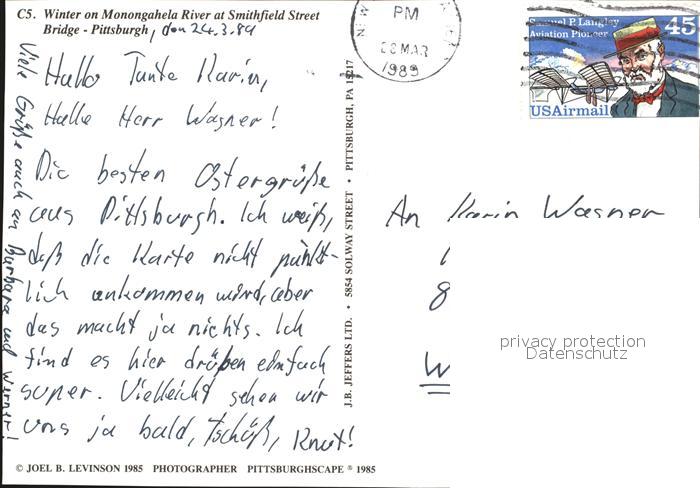 C5. Winter on Monongahela River at Smithfield Street
Bridge - Pittsburgh, den 24.3.89
Hallo Tante Karin,
Hallo Herr Wagner!
Die besten Ostergrüße
aus Pittsburgh. Ich weiß,
daß die Karte nicht pünkt-
lich ankommen wird, aber
das macht ja nichts. Ich
find es hier drüben einfach
super. Vielleicht sehen wir
uns ja bald, Tschüß, Knut!
Viele Grüße auch an Barbara und Werner!
© JOEL B. LEVINSON 1985 PHOTOGRAPHER PITTSBURGHSCAPE ® 1985
J.B. JEFFERS LTD. • 5854 SOLWAY STREET • PITTSBURGH, PA 15217
PM
28 MAR
1989
Samuel P. Langley
Aviation Pioneer
45
USAirmail
An Karin Wagner
8
W
privacy protection
Datenschutz